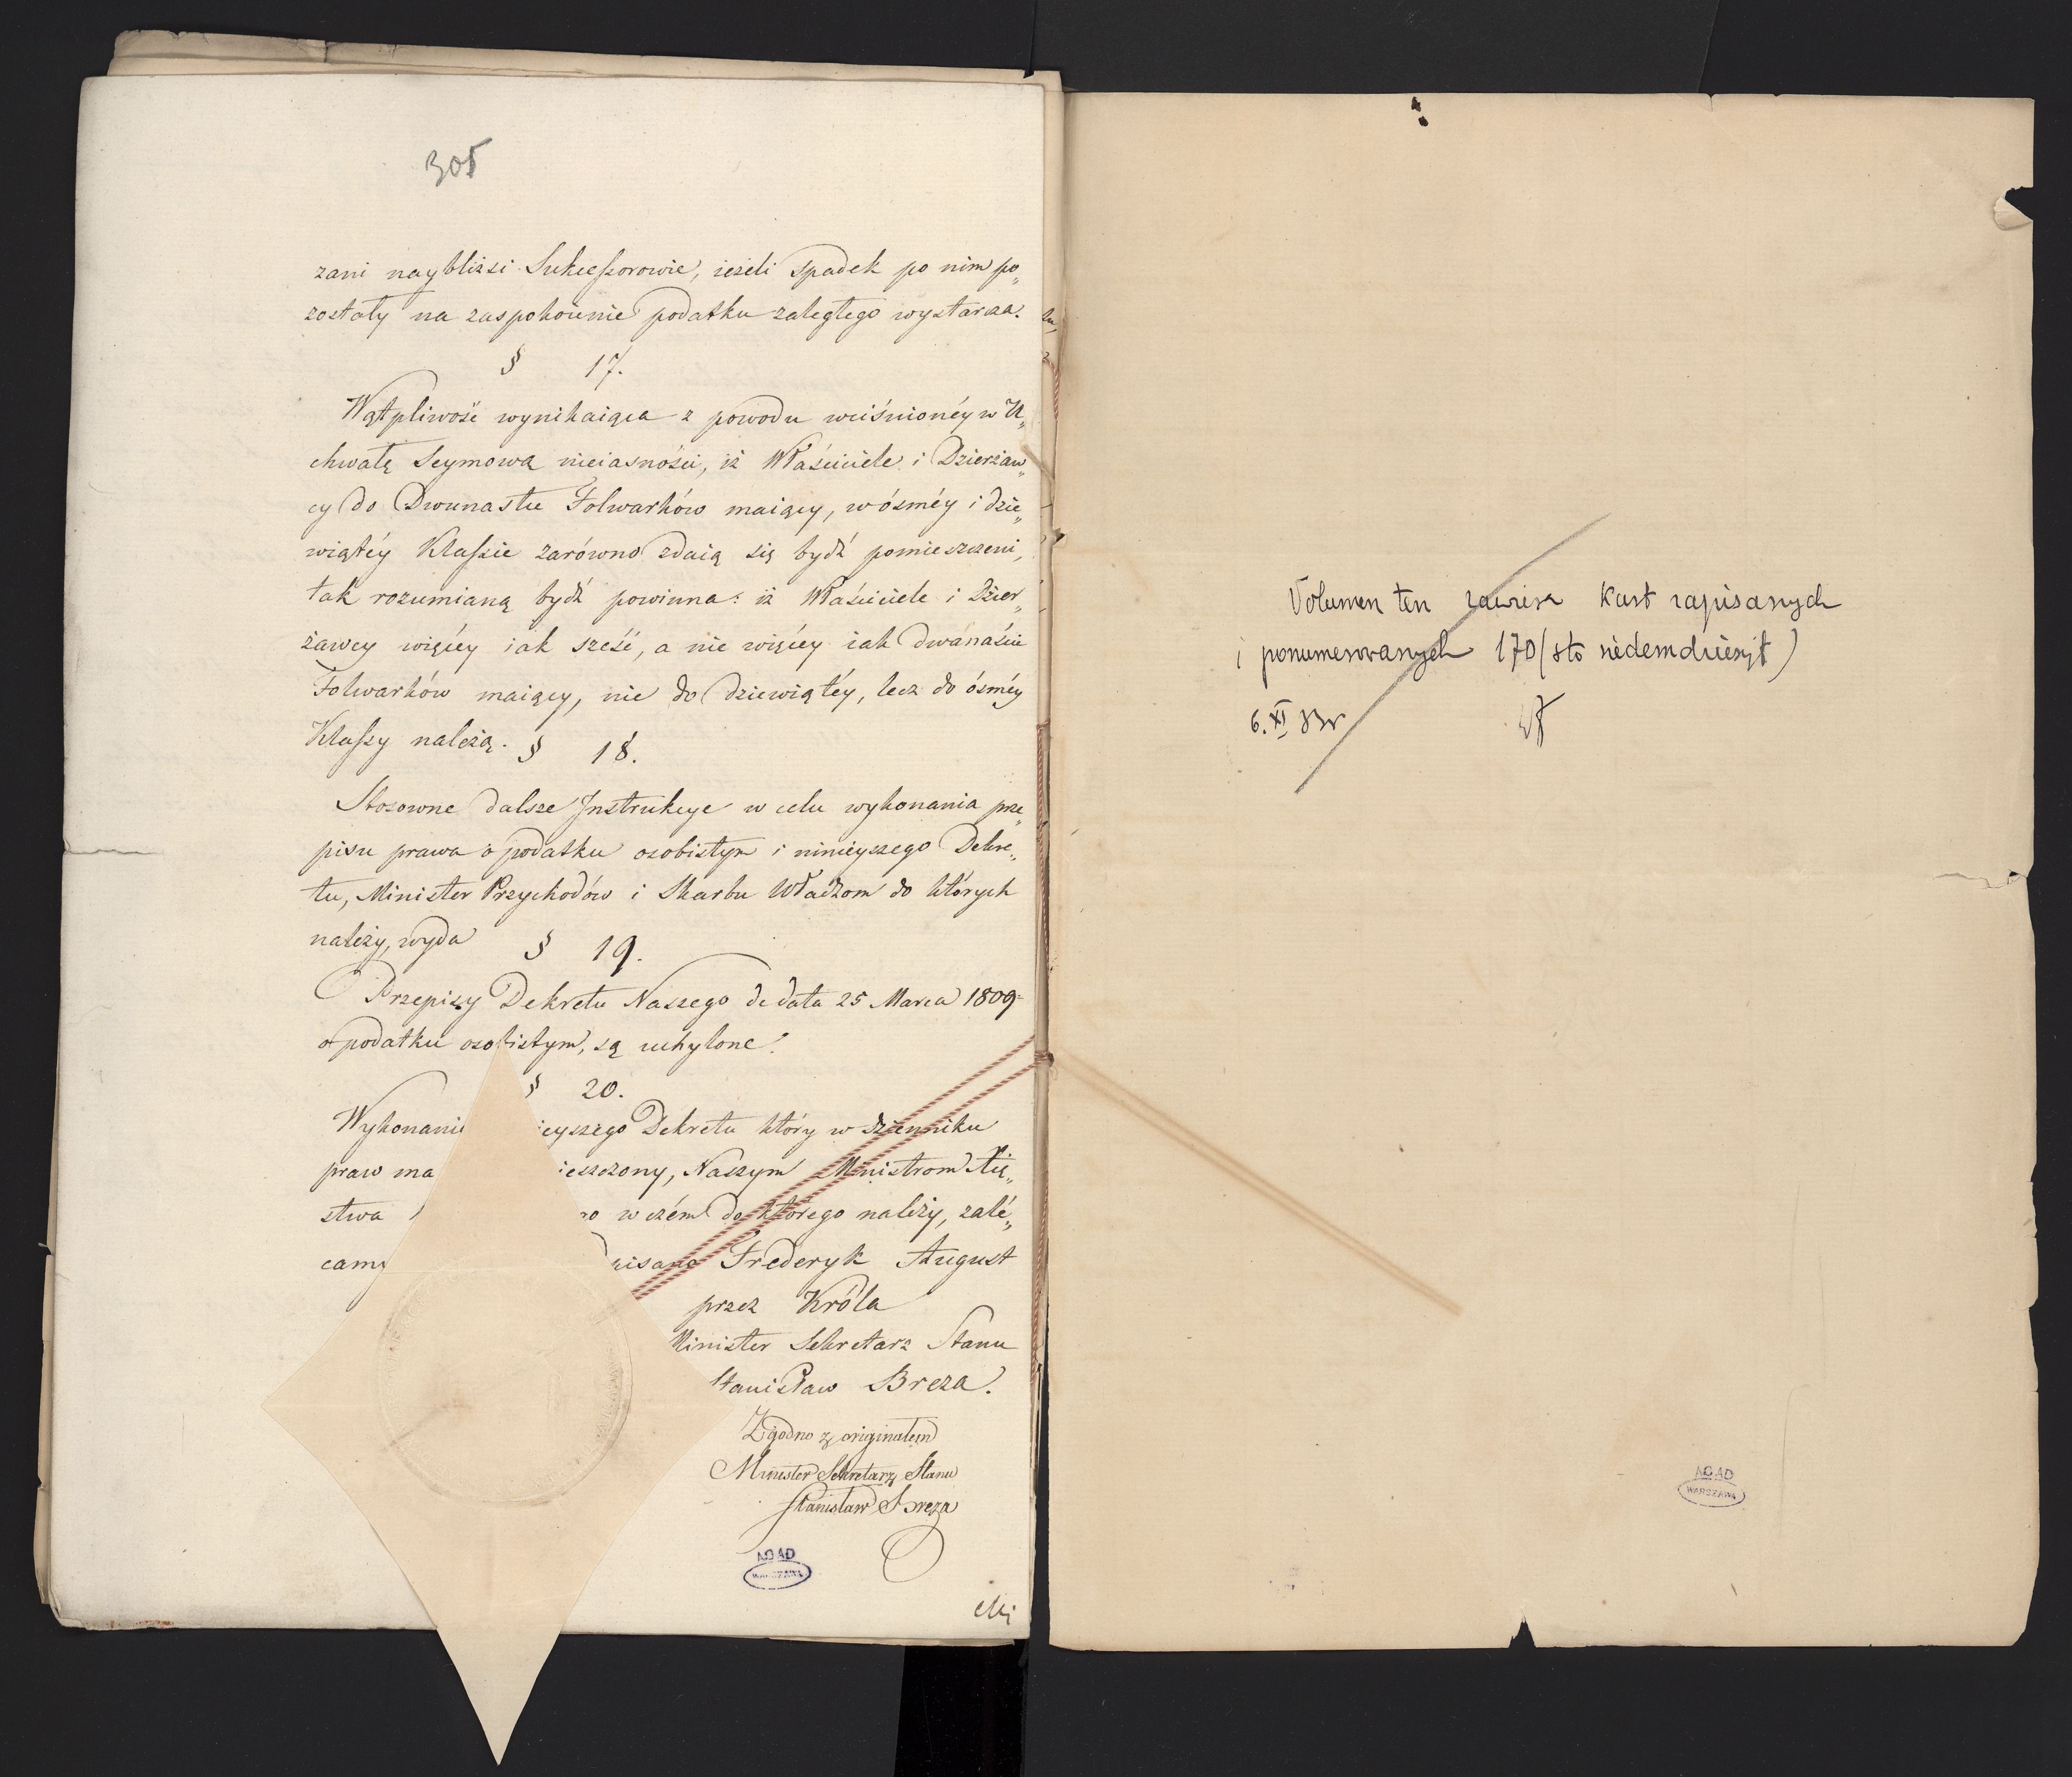 305
zani naybliżsi Sukcessorowie, ieżeli Spadek po nim po„
zostały na zaspokoienie podatku zaległego wystarcza.
§ 17.
Wątpliwość wynikaiąca z powodu wciśnionéy w U„
chwałę Seymową nieiasności, iż Właściciele i Dzierżaw„
cy do Dwunastu Folwarków maiący, w ósméy i dzie„
wiątéy Klassie zarówno zdaią się bydź pomieszczeni,
tak rozumianą bydź powinna: iż Właściciele i Dzier„
żawcy więcéy iak sześć, a nie więcéy iak dwanaście
Folwarków maiący, nie do dziewiątéy, lecz do ósméy
Klassy należą.
§ 18.
Stosowne dalsze Instrukcye w celu wykonania prze„
pisu prawa o podatku osobistym i ninieyszego Dekre„
tu, Minister Przychodów i Skarbu Władzom do których
należy, wyda
§ 19.
Przepisy Dekretu Naszego de data 25 Marca 1809
o podatku osobistym, są uchylone.
§ 20.
Wykonanie ieyszego Dekretu który w dzienniku
praw ma ieszczony, Naszym Ministrom Xię„
stwa go w czém do którego należy, zale„
camy pisano Frederyk August
przez Króla
Minister Sekretarz Stanu
Stanisław Breza.
Zgodno z originałem
Minister Sekretarz Stanu
Stanisław Breza
AGAD
WARSZAWA
Mi
Volumen ten zawiera kart zapisanych
i ponumerowanych 170 (sto siedemdziesiąt)
6. XI
AGAD
WARSZAWA